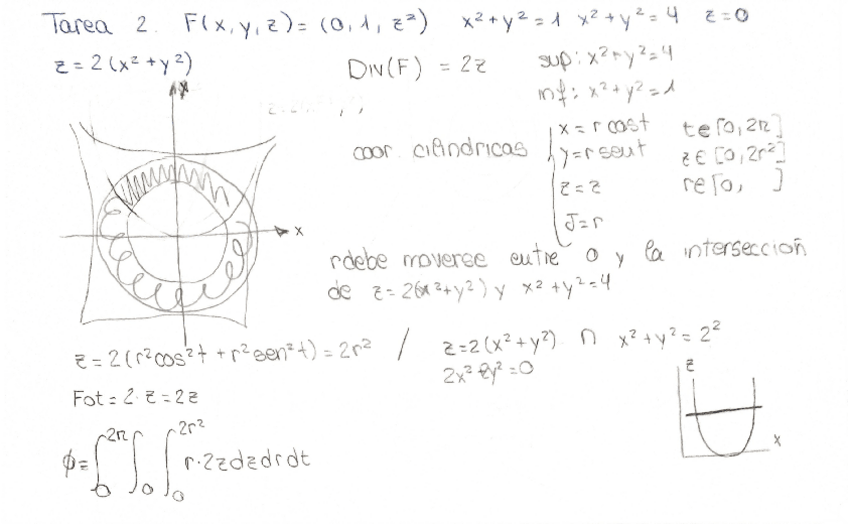 Tarea 2. F(x,y,z)=(0,1,z²) x²+y²=1 x²+y²=4 z=0
z=2(x²+y²)
Div(F) = 2z
sup: x²+y²=4
inf: x²+y²=1
coor. cilíndricas
x=r cost t∈[0,2π]
y=r sent z∈[0,2r²]
z=z r∈[0, ]
J=r
x
r debe moverse entre 0 y la intersección
de z=2(x²+y²) y x²+y²=4
z=2(r²cos²t+r²sen²t)=2r² / z=2(x²+y²) ∩ x²+y²=2²
2x²+2y²=0
Fot=2·z=2z
z
x
ϕ=∫₀^2π ∫₀ ∫₀^2r² r·2zdzdrdt